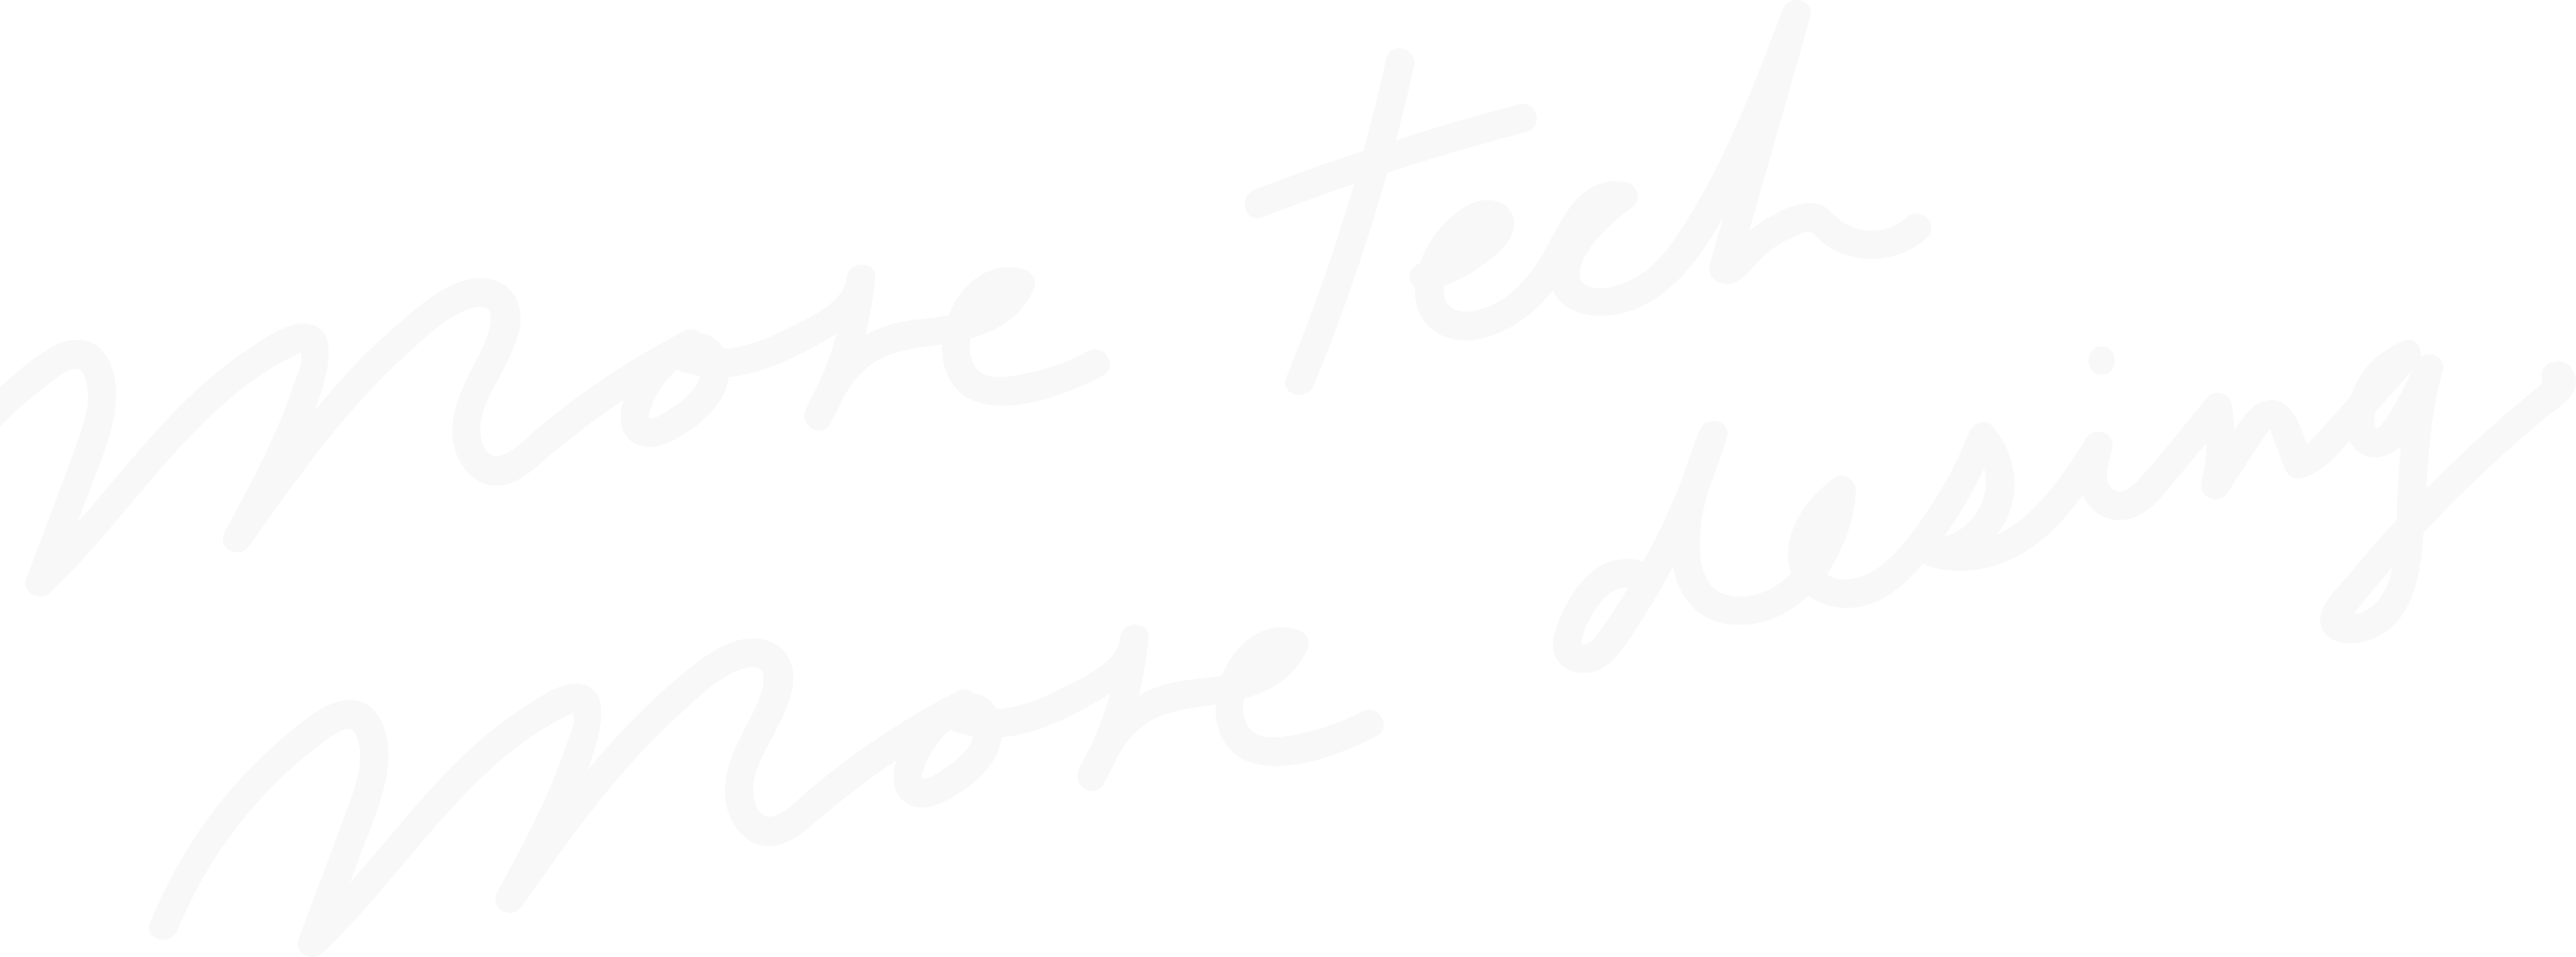 More tech
More desing